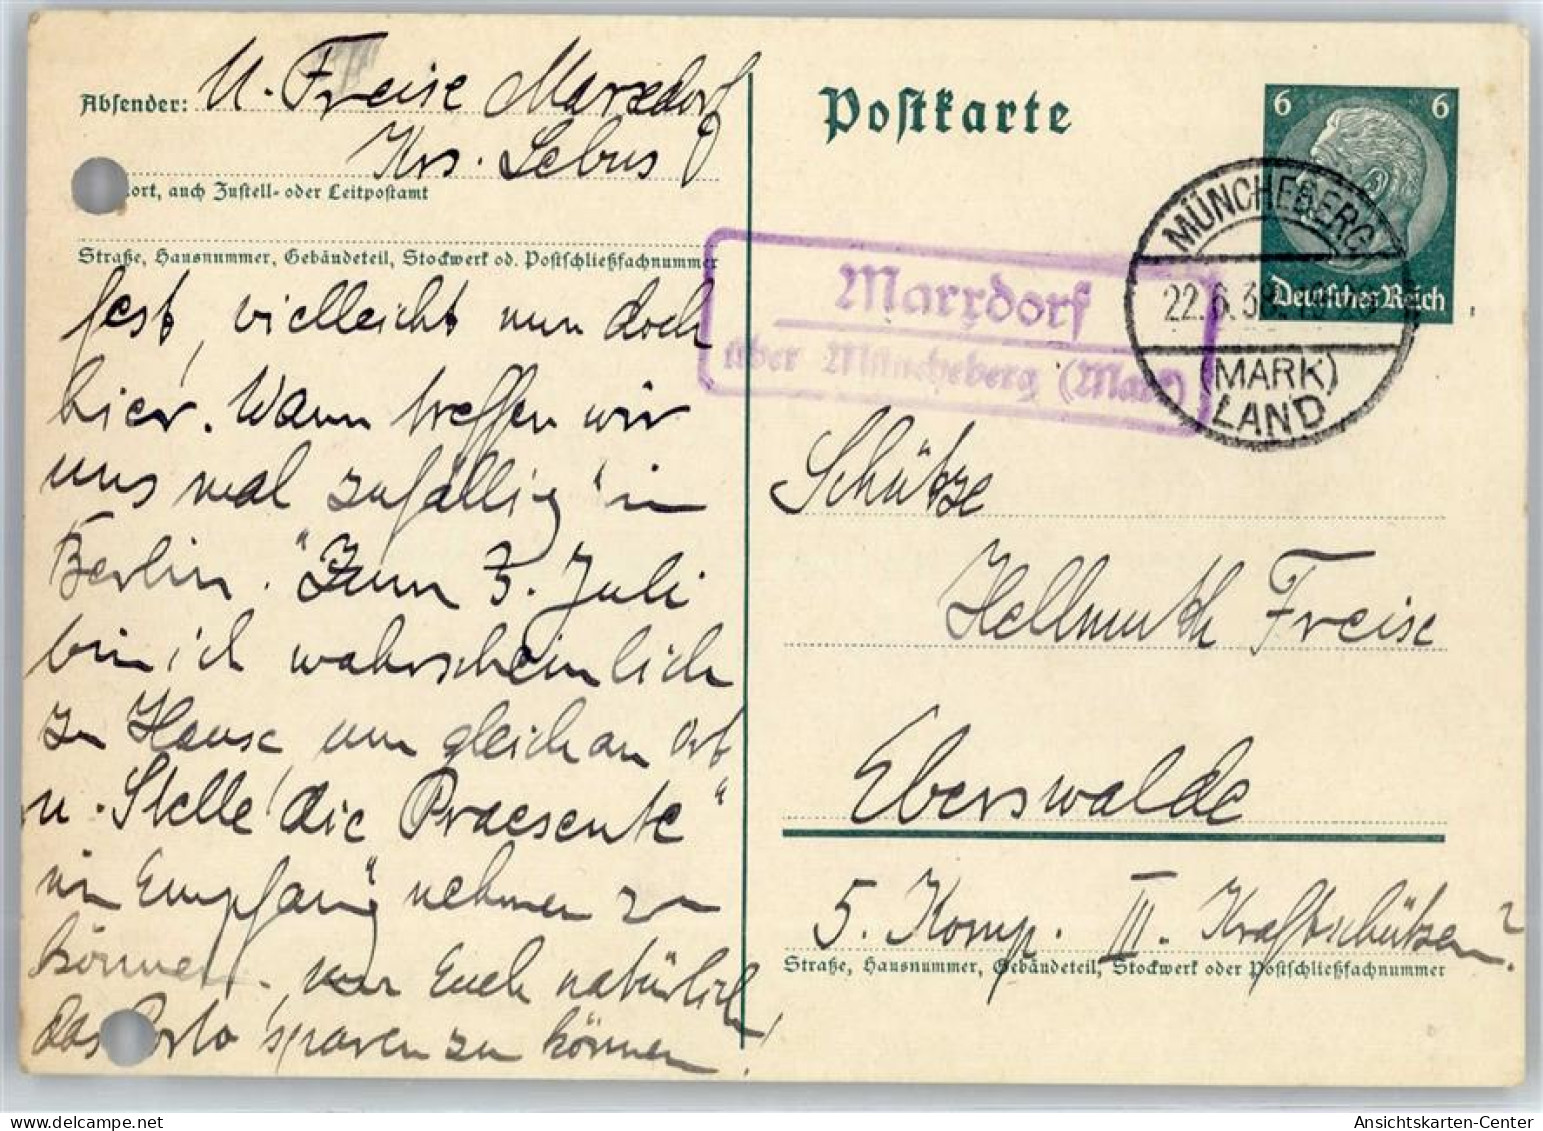 Absender: U. Freise Marxdorf
Krs. Lebus
ort, auch Zustell- oder Leitpostamt
Straße, Hausnummer, Gebäudeteil, Stockwerk od. Postschließfachnummer
fest, vielleicht nun doch
hier. Wann treffen wir
uns mal zufällig "in
Berlin." Zum 3. Juli
bin ich wahrscheinlich
zu Hause, um gleich an Ort
u. Stelle "die Praesente"
in Empfang nehmen zu
können. Euch natürlich
das Porto sparen zu können.
Postkarte
6 6
Deutsches Reich
MÜNCHEBERG
22.6.39
(MARK)
LAND
Marxdorf
über Müncheberg (Mark)
Schütze
Hellmuth Freise
Eberswalde
5. Komp. III. Kraftschützen?
Straße, Hausnummer, Gebäudeteil, Stockwerk oder Postschließfachnummer
Ansichtskarten-Center